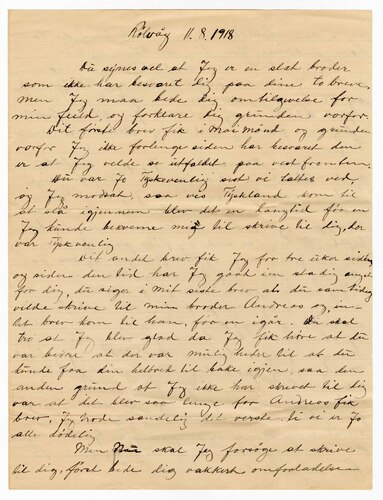 Kolvåg 11.8.1918
Du synes vel at Jeg er en slet broder
som ikke har besvaret dig paa dine to breve,
men Jeg maa bede dig om tilgivelse for
min feil, og forklare dig grunden vorfor.
Dit förste brev fik i Mai Månd og grunden
vorfor Jeg ikke forlenge siden har besvaret den
er at Jeg velde se utfaldet paa vestfronten.
Du var Jo Tyskvenlig sist vi sattes ved,
og Jeg modsat, saa vis Tyskland som til
at slå igjennem blev det en langtid før en
Jeg kunde bekveme mig til skrive til dig, der
var Tyskvenlig
Dit andet brev fik Jeg for tre uker siden
og siden den tid har Jeg gaat i en stadig angst
for dig, du siger i mit siste brev at du samtidig
vilde skrive til min broder Andreas og, in-
tet brev kom til ham, för en igår. Du skal
tro at Jeg blev glad da Jeg fik höre at du
var bedre at der var muligheder til at du
kunde faa din helbred tilbake igjen, saa den
anden grund at Jeg ikke har skrevet til dig
var at det blev saa lenge for Andreas fik
brev, Jeg trode sandelig det verste ti vi er Jo
alle dödelig
Men Nu skal Jeg forsöge at skrive
til dig, först bede dig vakkert om forladelse